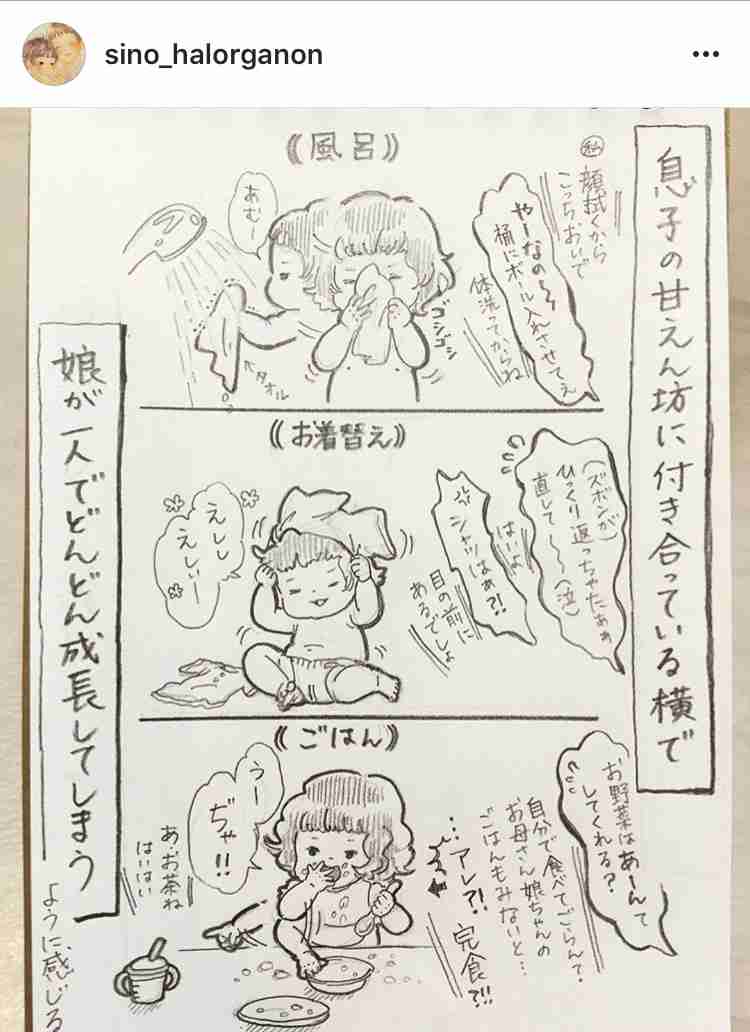 sino_halorganon
息子の甘えん坊に付き合っている横で
《風呂》
私 顔拭くから
こっちおいで
やーなの〜〜
桶にボール入れさせてぇ
体洗ってからね
ゴシゴシ
あむー
タオル
《お着替え》
(ズボンが)
ひっくり返っちゃたぁぁ
直して〜〜(泣)
はいよ
シャツはぁ?!
目の前に
あるでしょ
えしし
えしぃー
《ごはん》
お野菜はあーんて
してくれる?
自分で食べてごらんて。
お母さん娘ちゃんの
ごはんもみないと…
アレ?!
完食?!!
うー
ぢゃ!!
あ、お茶ね
はいはい
娘が一人でどんどん成長してしまう
ように感じる